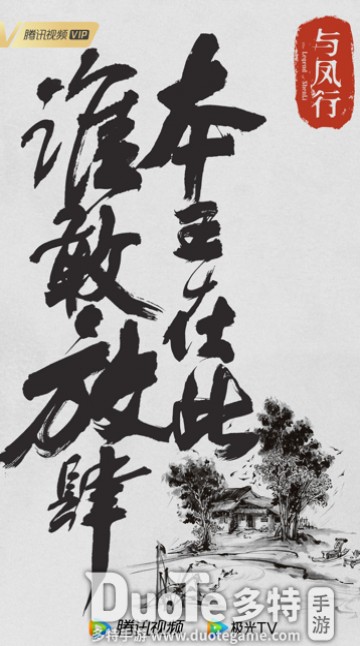 腾讯视频 VIP
与凤行
The Legend of ShenLi
本王在此
谁敢放肆
DuoTe多特手游
腾讯视频 极光TV
多特手游 www.duotegame.com